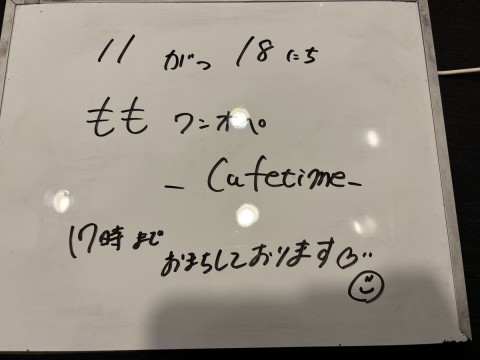 11 がつ 18 にち
もも ワンオペ
- Cafetime -
17時まで
おまちしております